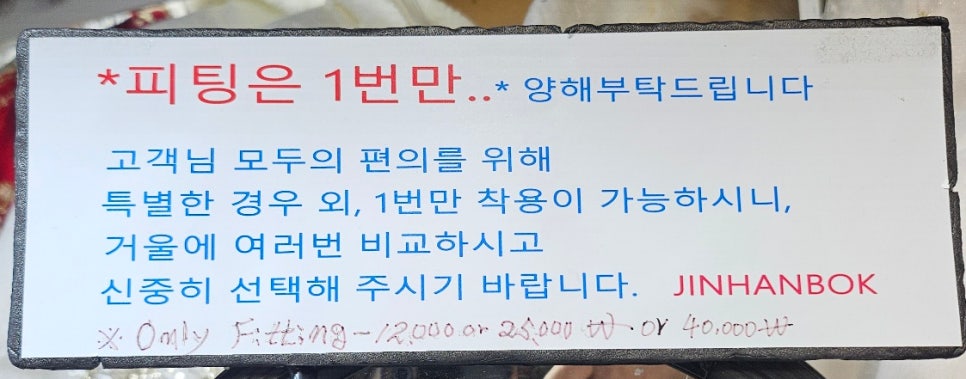 *피팅은 1번만..* 양해부탁드립니다
고객님 모두의 편의를 위해
특별한 경우 외, 1번만 착용이 가능하시니,
거울에 여러번 비교하시고
신중히 선택해 주시기 바랍니다. JINHANBOK
※ Only Fitting - 12,000 or 25,000 ₩ or 40,000 ₩